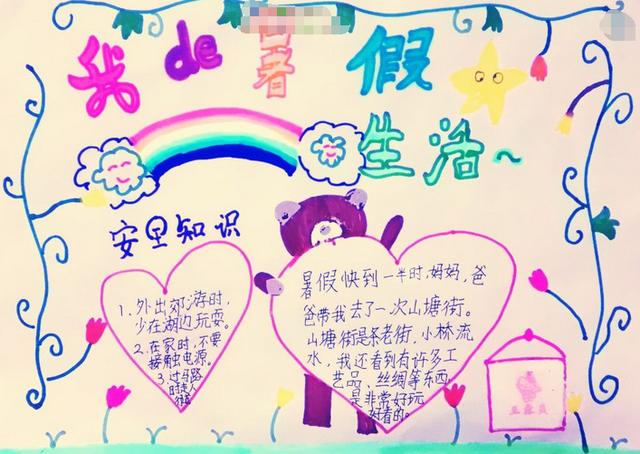 我de暑假
生活~
安里知识
1、外出郊游时,
少在湖边玩耍。
2、在家时,不要
接触电源。
3、过马路
时
暑假快到一半时,妈妈,爸
爸带我去了一次山塘街。
山塘街是条老街,小桥流
水,我还看到有许多工
艺品、丝绸等东西,
是非常好玩
好看的。